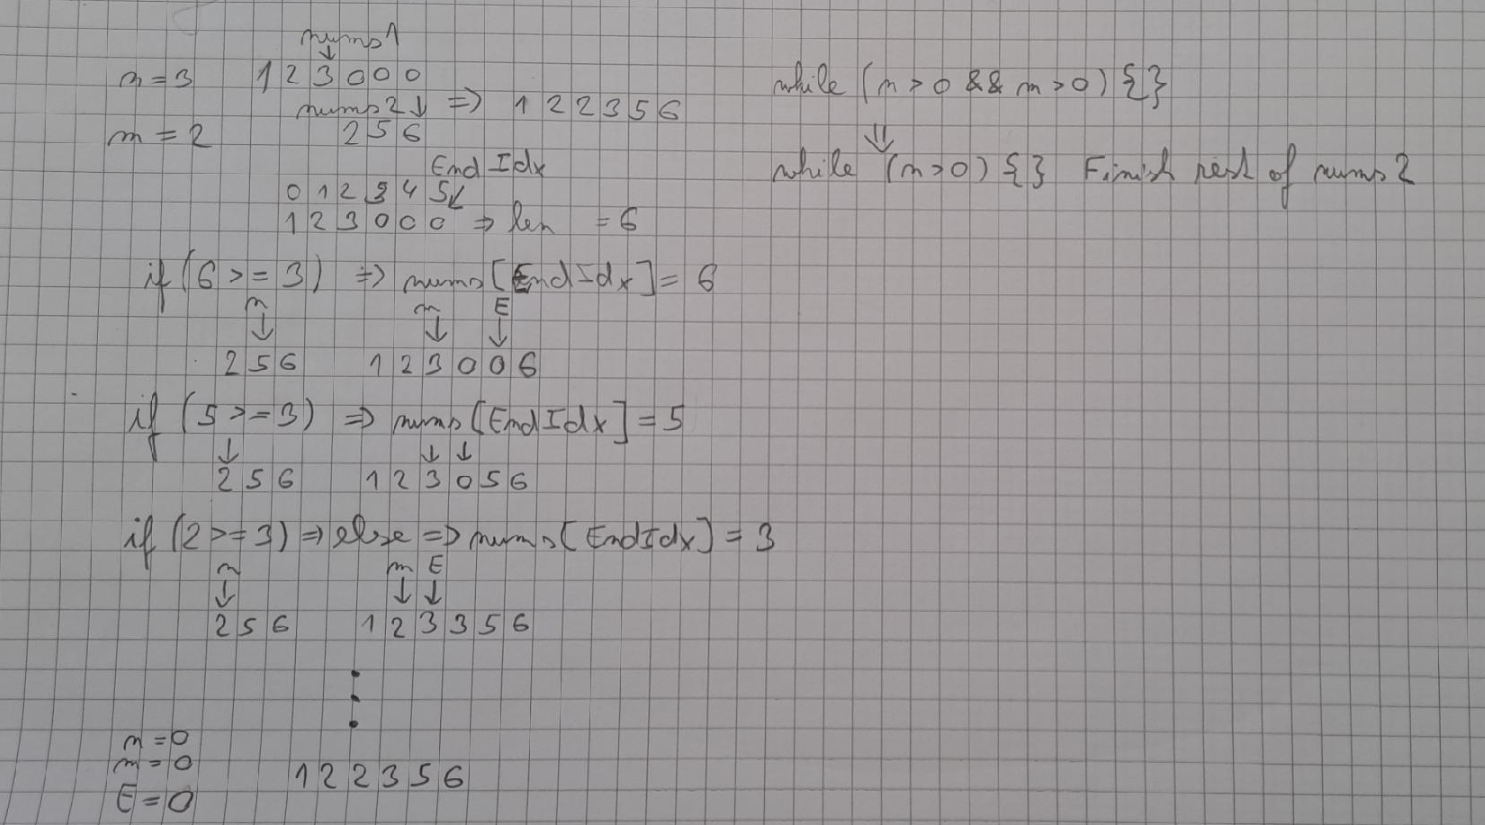 nums1
n = 3 1 2 3 0 0 0
nums2 => 1 2 2 3 5 6
m = 2 2 5 6
EndIdx
0 1 2 3 4 5
1 2 3 0 0 0 => len = 6
if (6 >= 3) => nums[EndIdx] = 6
n m E
2 5 6 1 2 3 0 0 6
if (5 >= 3) => nums[EndIdx] = 5
2 5 6 1 2 3 0 5 6
if (2 >= 3) => else => nums[EndIdx] = 3
n m E
2 5 6 1 2 3 3 5 6
n = 0
m = 0
E = 0
1 2 2 3 5 6
while (n > 0 && m > 0) {}
while (n > 0) {} Finish rest of nums2